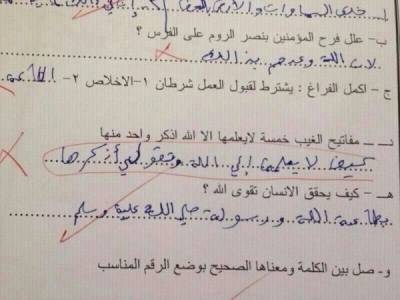 خلق السماوات والأرض
ب- علل فرح المؤمنين بنصر الروم على الفرس ؟
لأن الله وعدهم بذلك
ج - اكمل الفراغ : يشترط لقبول العمل شرطان ١-الاخلاص ٢-
د ــ مفاتيح الغيب خمسة لايعلمها الا الله اذكر واحد منها
كيف لا يعلمها إلا الله وتبغوني أذكرها
هـ- كيف يحقق الانسان تقوى الله ؟
بطاعة الله ورسوله صلى الله عليه وسلم
و- صل بين الكلمة ومعناها الصحيح بوضع الرقم المناسب